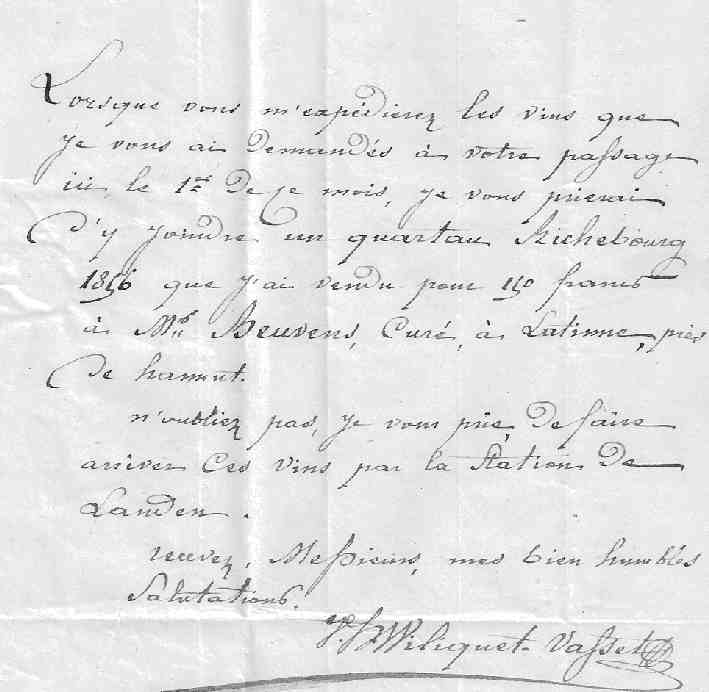 Lorsque vous m'expédierez les vins que
je vous ai demandés à votre passage
ici, le 1er de ce mois, je vous prierai
d'y joindre un quartau Richebourg
1856 que j'ai vendu pour 150 francs
à Mr Beuvens, Curé, à Latinne, près
de hannut.
n'oubliez pas, je vous prie, de faire
arriver ces vins par la Station de
Landen.
recevez, Messieurs, mes bien humbles
Salutations.
Wilicquet-Vasset